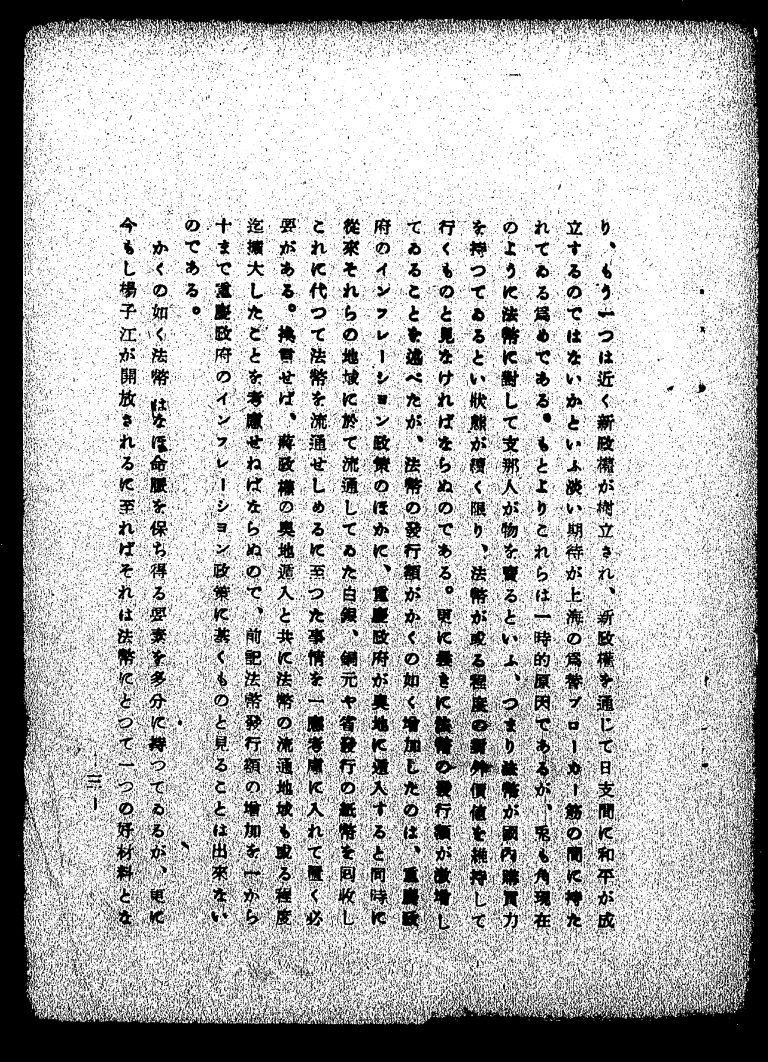 り、もう一つは近く新政權が樹立され、新政權を通じて日支間に和平が成
立するのではないかといふ淡い期待が上海の爲替ブローカー筋の間に持た
れてゐる爲めである。もとよりこれらは一時的原因であるが、兎も角現在
のように法幣に對して支那人が物を賣るといふ、つまり法幣が國內購買力
を持つてゐるとい狀態が續く限り、法幣が或る程度の對外價値を維持して
行くものと見なければならぬのである。更に曩きに法幣の發行額が激增し
てゐることを述べたが、法幣の發行額がかくの如く增加したのは、重慶政
府のインフレーション政策のほかに、重慶政府が奧地に遁入すると同時に
從來それらの地域に於て流通してゐた白銀、銅元や省發行の紙幣を回收し
これに代つて法幣を流通せしめるに至つた事情を一應考慮に入れて置く必
要がある。換言せば、蔣政權の奧地遁入と共に法幣の流通地域も或る程度
迄擴大したことを考慮せねばならぬので、前記法幣發行額の增加を一から
十まで重慶政府のインフレーション政策に基くものと見ることは出來ない
のである。
かくの如く法幣はなほ命脈を保ち得る要素を多分に持つてゐるが、更に
今もし揚子江が開放されるに至ればそれは法幣にとつて一つの好材料とな
三